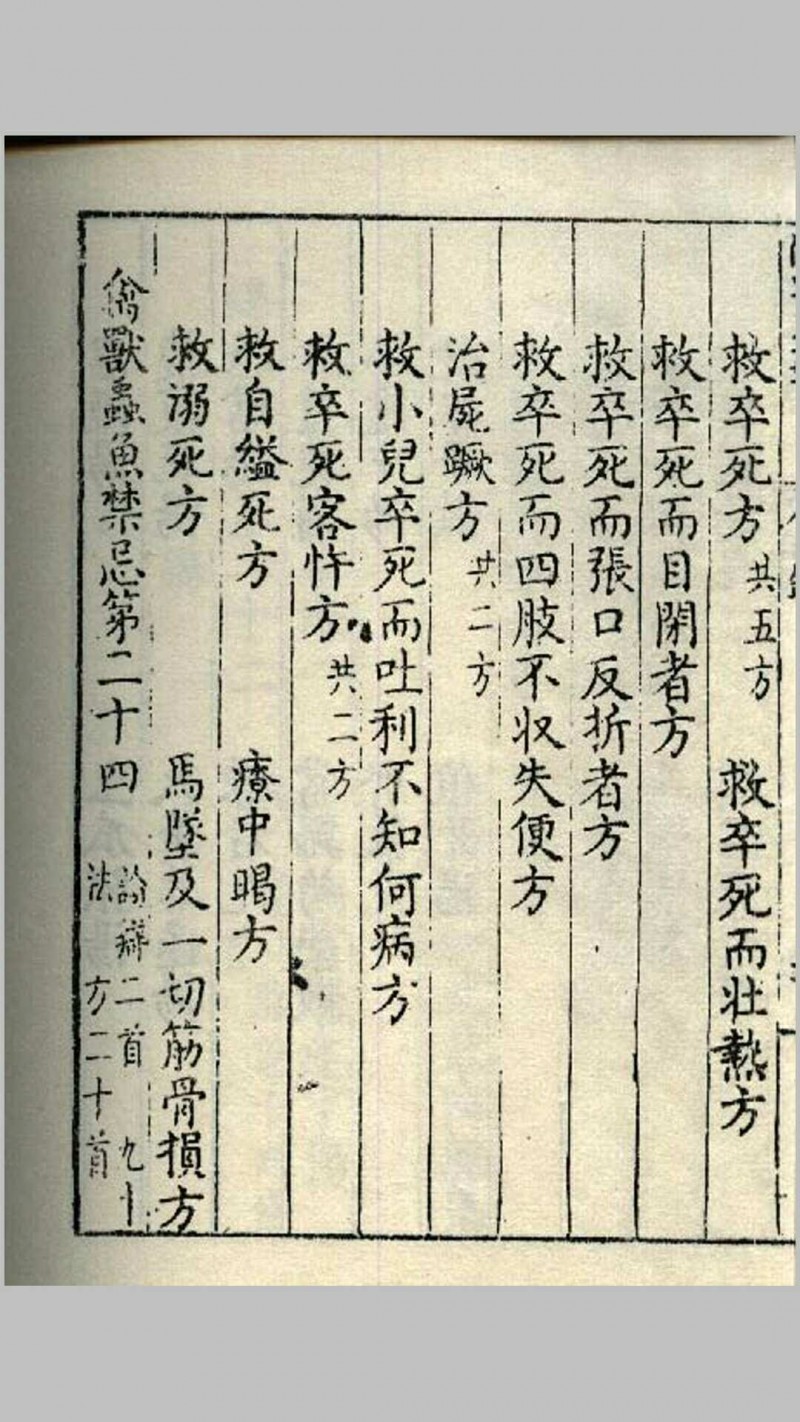 救卒死方 共五方 救卒死而壯熱方
救卒死而目閉者方
救卒死而張口反折者方
救卒死而四肢不收失便方
治屍蹶方 共二方
救小兒卒死而吐利不知何病方
救卒死客忤方 共二方
救自縊死方 療中暍方
救溺死方 馬墜及一切筋骨損方
禽獸蟲魚禁忌第二十四 論辯二首 九十
法 方二十首